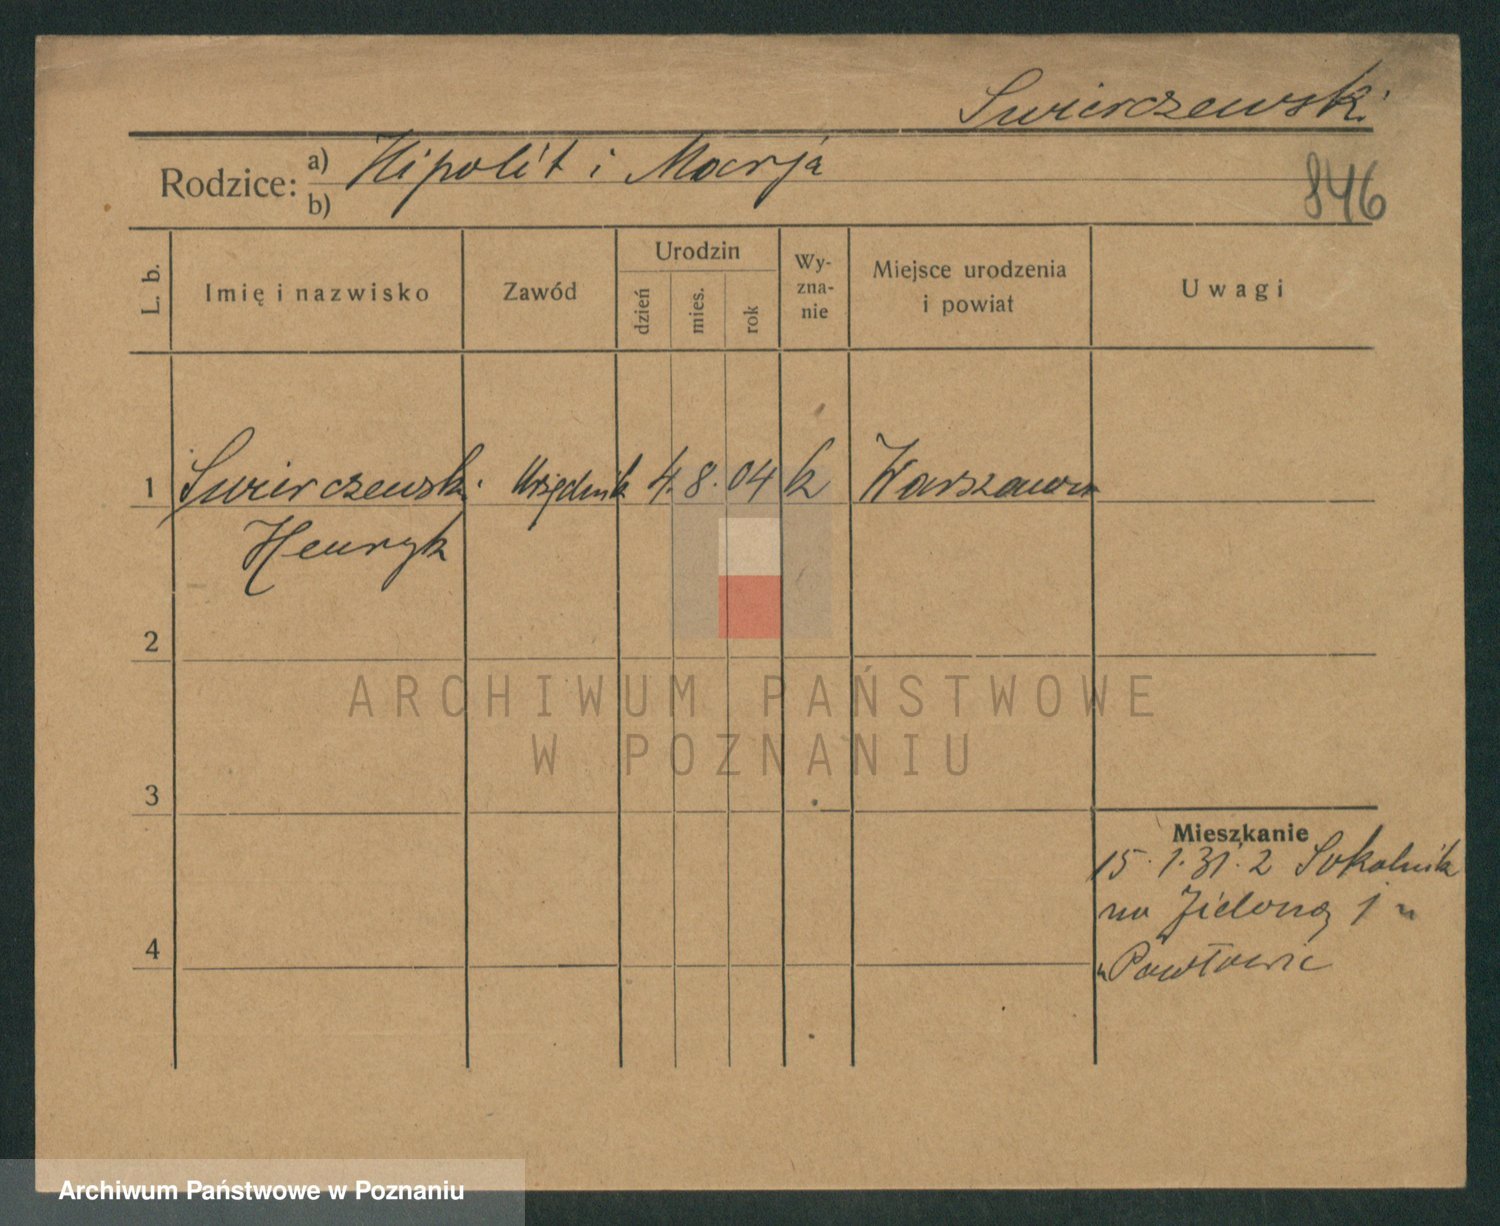 Swierczewski
Rodzice: a) Hipolit i Marja
b)
846
L. b.
Imię i nazwisko
Zawód
Urodzin
dzień
mies.
rok
Wy-
zna-
nie
Miejsce urodzenia
i powiat
Uwagi
1 Swierczewski Urzędnik 4. 8. 04 k Warszawa
Henryk
2
3
4
Mieszkanie
15. 1. 31. 2 Sokolnik
na Zieloną 1
Pawłowic
ARCHIWUM PAŃSTWOWE
W POZNANIU
Archiwum Państwowe w Poznaniu